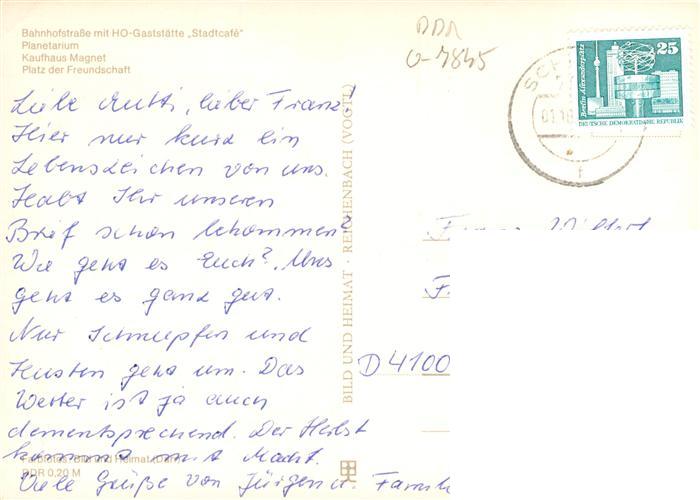 Bahnhofstraße mit HO-Gaststätte „Stadtcafé"
Planetarium
Kaufhaus Magnet
Platz der Freundschaft
DDR
O-7845
Liebe Mutti, lieber Franz!
Hier nur kurz ein
Lebenszeichen von uns.
Habt Ihr unseren
Brief schon bekommen?
Wie geht es Euch? Uns
geht es ganz gut.
Nur Schnupfen und
Husten geht um. Das
Wetter ist ja auch
dementsprechend. Der Herbst
kommt mit Macht.
Viele Grüße von Jürgen u. Famil
BILD UND HEIMAT · REICHENBACH (VOGTL)
Berlin, Alexanderplatz
25
DEUTSCHE DEMOKRATISCHE REPUBLIK
01.10
f
D 4100
DDR 0,20 M